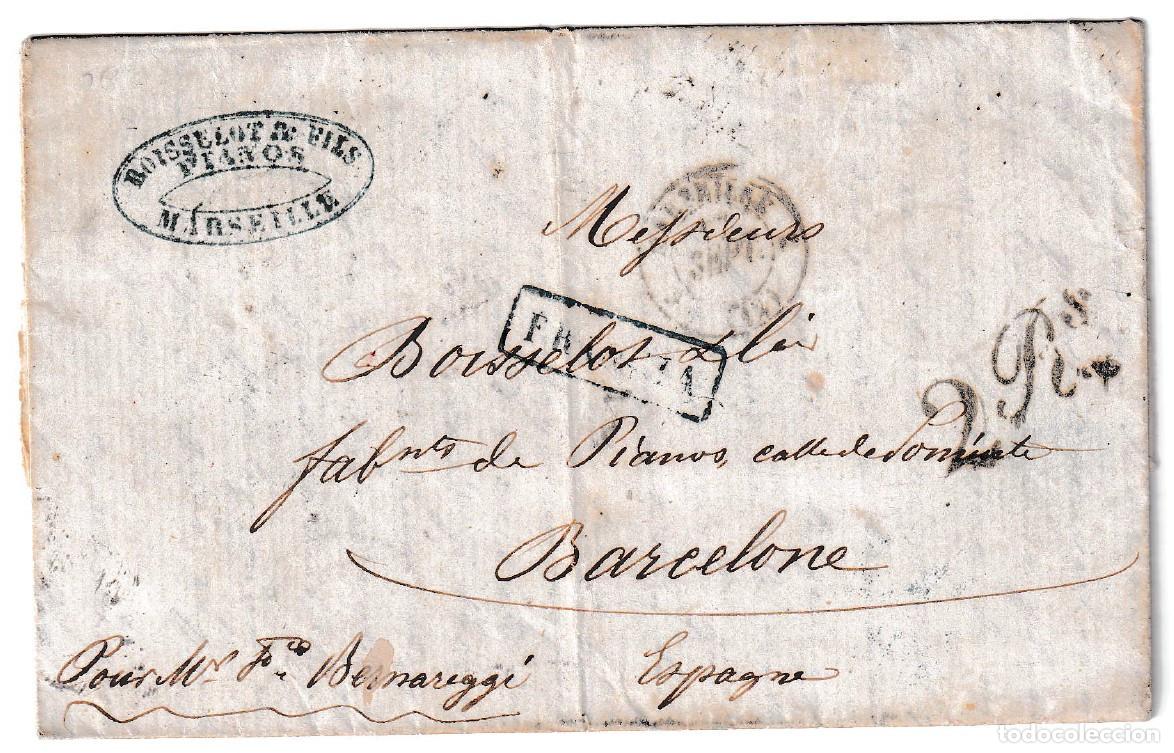 BOISSELOT & FILS
PIANOS
MARSEILLE
MARSEILLE
SEPT.
(12)
2 Rs
FRANCIA
Messieurs
Boisselot & Cie
fabnts de Pianos, calle de
Barcelone
Espagne
Pour Mr Fco Bernareggi
todocoleccion